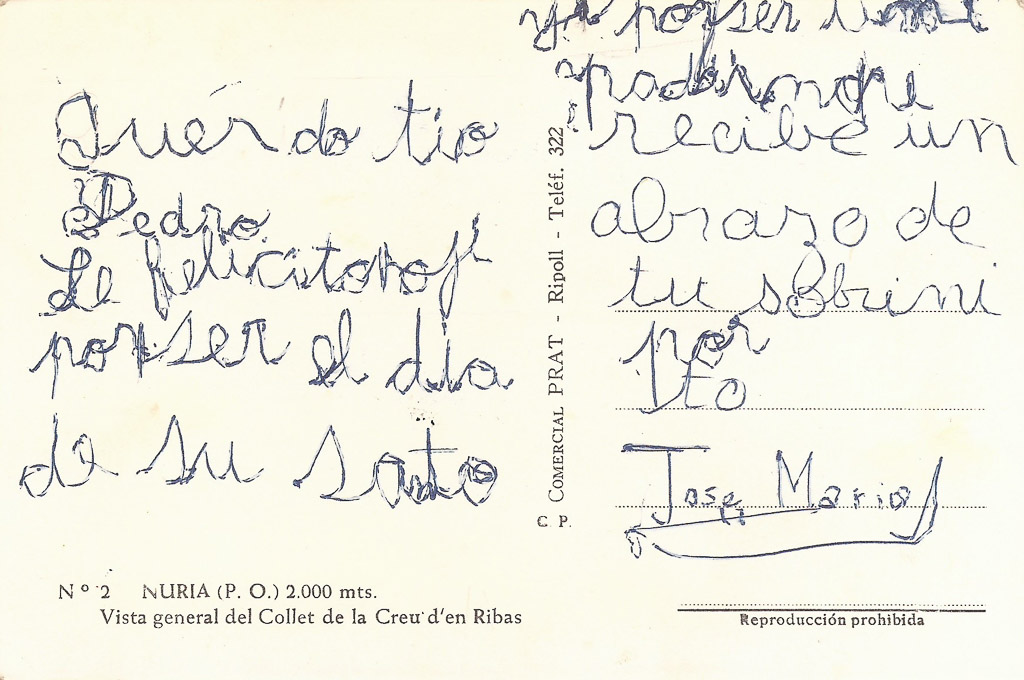 Querido tio
Pedro.
Le felicitono
por ser el dia
de su santo
ya por ser mi
padrino
recibe un
abrazo de
tu sobrini
por
Vto
Jose Maria
COMERCIAL PRAT - Ripoll - Teléf. 322
C. P.
Nº 2 NURIA (P. O.) 2.000 mts.
Vista general del Collet de la Creu d'en Ribas
Reproducción prohibida